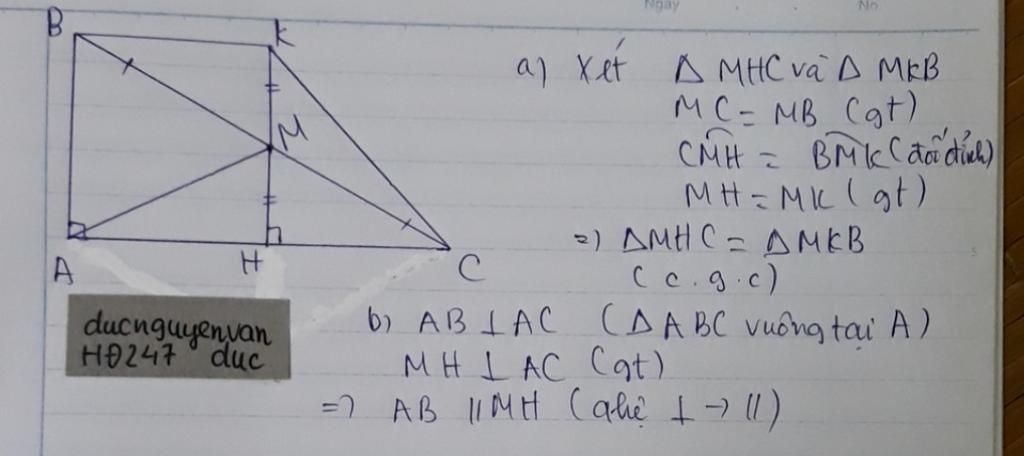 Ngày
No
B
K
M
A
H
C
a) Xét Δ MHC và Δ MKB
MC = MB (gt)
CMH = BMK (đối đỉnh)
MH = MK (gt)
=) ΔMHC = ΔMKB
(c.g.c)
ducnguyenvan
HĐ247 duc
b) AB ⊥ AC (Δ ABC vuông tại A)
MH ⊥ AC (gt)
=) AB // MH (qhệ ⊥ → //)